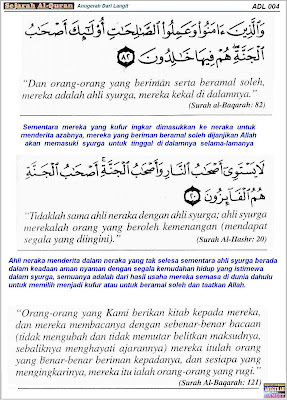 Sejarah Al-Quran
Anugerah Dari Langit
ADL 004
وَالَّذِينَ ءَامَنُوا وَعَمِلُوا الصَّالِحَاتِ أُولَٰئِكَ أَصْحَابُ
الْجَنَّةِ هُمْ فِيهَا خَالِدُونَ ٨٢
“Dan orang-orang yang beriman serta beramal soleh,
mereka adalah ahli syurga, mereka kekal di dalamnya.”
(Surah al-Baqarah: 82)
Sementara mereka yang kufur ingkar dimasukkan ke neraka untuk
menderita azabnya, mereka yang beriman beramal soleh dijanjikan Allah
akan memasuki syurga untuk tinggal di dalamnya selama-lamanya
لَا يَسْتَوِي أَصْحَابُ النَّارِ وَأَصْحَابُ الْجَنَّةِ أَصْحَابُ الْجَنَّةِ
هُمُ الْفَائِزُونَ ٢٠
“Tidaklah sama ahli neraka dengan ahli syurga; ahli syurga
merekalah orang yang beroleh kemenangan (mendapat
segala yang diingini).”
(Surah Al-Hashr: 20)
Ahli neraka menderita dalam neraka yang tak selesa sementara ahli syurga berada
dalam keadaan aman nyaman dengan segala kemudahan hidup yang istimewa
dalam syurga, semuanya adalah dari hasil usaha mereka semasa di dunia dahulu
untuk memilih menjadi kufur atau untuk beramal soleh dan taatkan Allah.
“Orang-orang yang Kami berikan kitab kepada mereka,
dan mereka membacanya dengan sebenar-benar bacaan
(tidak mengubah dan tidak memutar belitkan maksudnya,
sebaliknya menghayati ajarannya) mereka itulah orang
yang Benar-benar beriman kepadanya, dan sesiapa yang
mengingkarinya, mereka itu ialah orang-orang yang rugi.”
(Surah Al-Baqarah: 121)